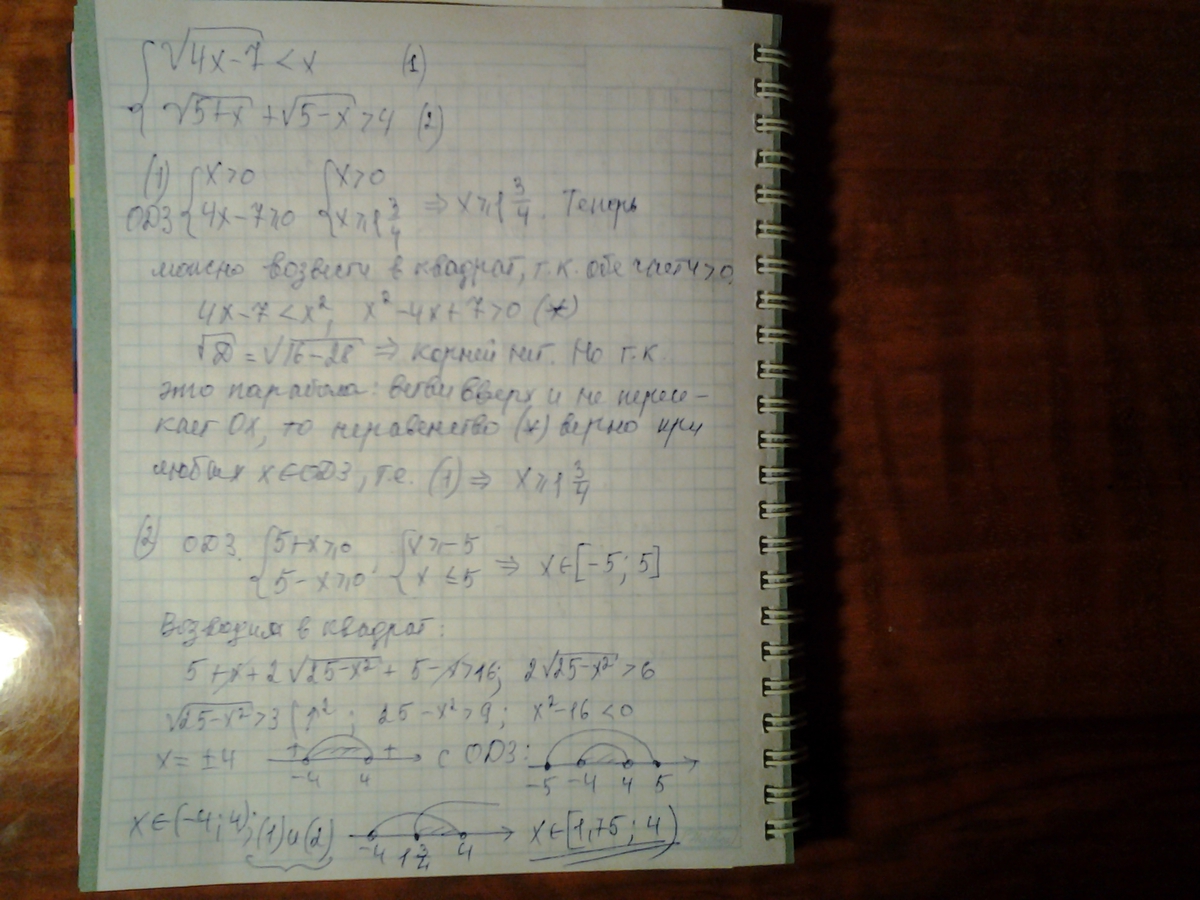 { √4x-7 < x (1)
√5+x + √5-x > 4 (2)
(1) ОДЗ { x>0 { x>0
4x-7≥0 x≥1 3/4 ⇒ x≥1 3/4. Теперь
можно возвести в квадрат, т.к. обе части >0.
4x-7 < x²; x²-4x+7>0 (*)
√D = √16-28 ⇒ корней нет. Но т.к.
это парабола: ветви вверх и не пересе-
кает OX, то неравенство (*) верно при
любых x∈ОДЗ, т.е. (1) ⇒ x≥1 3/4
(2) ОДЗ. { 5+x≥0 { x≥-5
5-x≥0; x≤5 ⇒ x∈[-5; 5]
Возводим в квадрат:
5+x+2√25-x² + 5-x>16; 2√25-x² > 6
√25-x² > 3 |↑²; 25-x²>9; x²-16<0
x=±4 + -4 4 + с ОДЗ: -5 -4 4 5
x∈(-4; 4); (1) и (2) -4 1 3/4 4 x∈[1,75; 4)